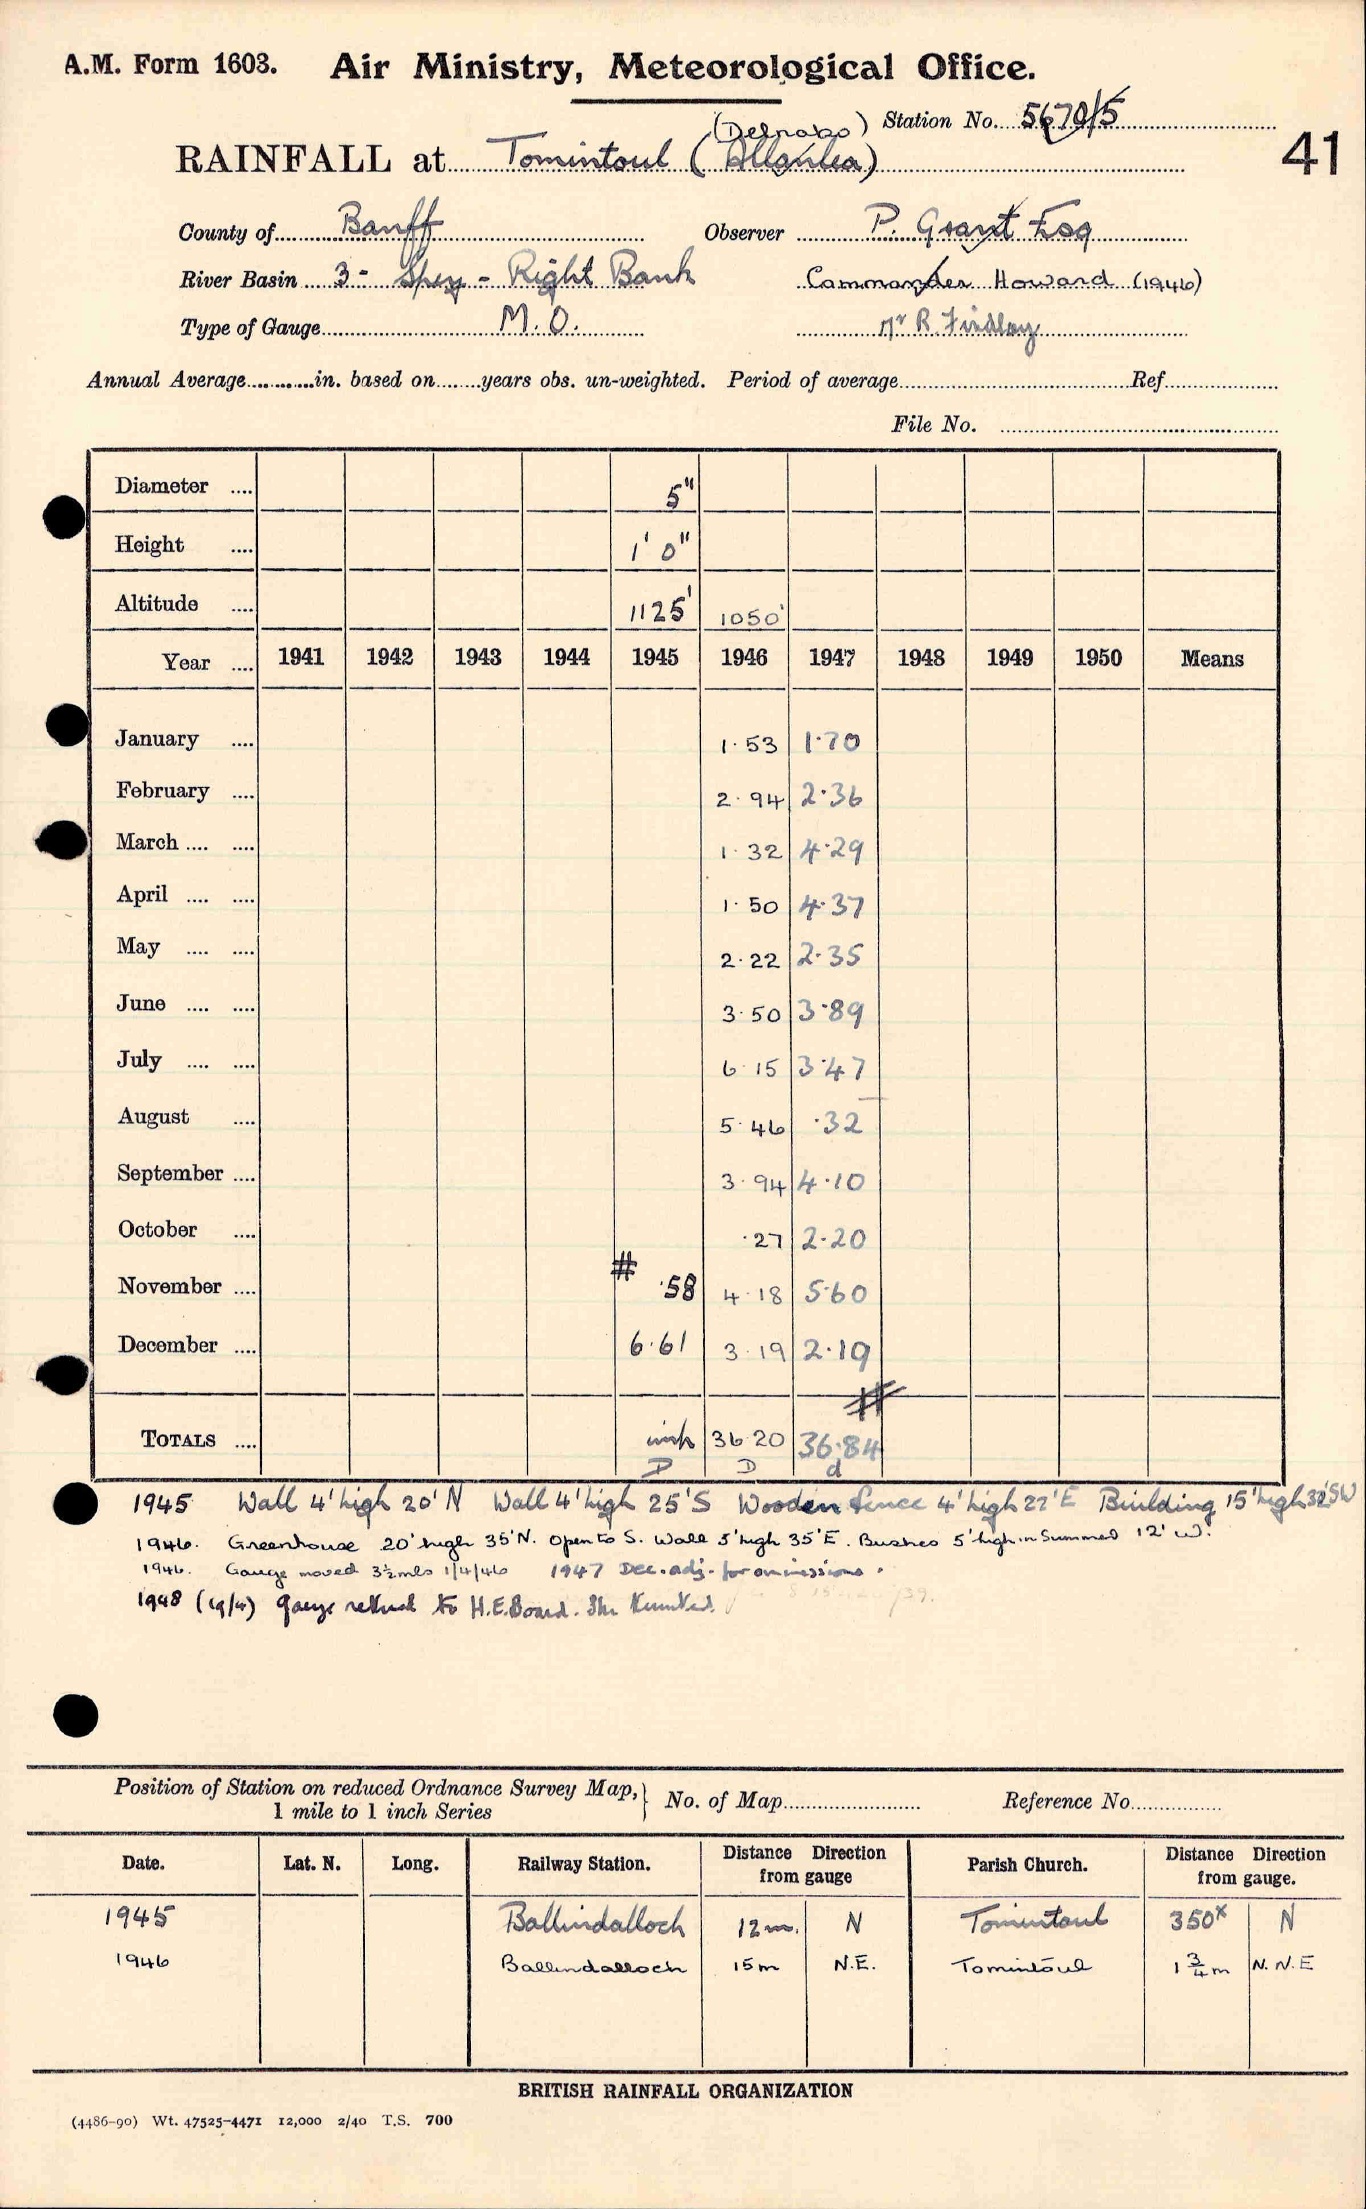 A.M. Form 1603. Air Ministry, Meteorological Office.
Station No. 5670/5
41
(Delnabo)
RAINFALL at Tomintoul (
County of Banff Observer P. Grant Esq
River Basin 3 - Spey - Right Bank Commander Howard (1946)
Type of Gauge M.O. Mr R Findlay
Annual Average in. based on years obs. un-weighted. Period of average Ref
File No.
Diameter 5"
Height 1' 0"
Altitude 1125' 1050'
Year 1941 1942 1943 1944 1945 1946 1947 1948 1949 1950 Means
January 1.53 1.70
February 2.94 2.36
March 1.32 4.29
April 1.50 4.37
May 2.22 2.35
June 3.50 3.89
July 6.15 3.47
August 5.46 .32
September 3.94 4.10
October .27 2.20
November # .58 4.18 5.60
December 6.61 3.19 2.19
#
TOTALS 36.20 36.84
D D d
1945 Wall 4' high 20' N Wall 4' high 25' S Wooden fence 4' high 22' E Building 15' high 32' SW
1946. Greenhouse 20' high 35' N. Open to S. Wall 5' high 35' E. Bushes 5' high in Summer 12' W.
1946. Gauge moved 3½ mls 1/4/46 1947 Dec. adj. for omissions.
1948 (19/4) gauge returned to H.E. Board.
Position of Station on reduced Ordnance Survey Map, } No. of Map Reference No.
1 mile to 1 inch Series
Date. Lat. N. Long. Railway Station. Distance Direction from gauge Parish Church. Distance Direction from gauge.
1945 Ballindalloch 12 m. N Tomintoul 350x N
1946 Ballindalloch 15 m N.E. Tomintoul 1¾ m N.N.E
BRITISH RAINFALL ORGANIZATION
(4486-90) Wt. 47525-4471 12,000 2/40 T.S. 700